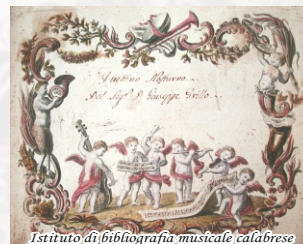 Notturno
Del Sig.r D. Giuseppe Grillo
Istituto di bibliografia musicale calabrese